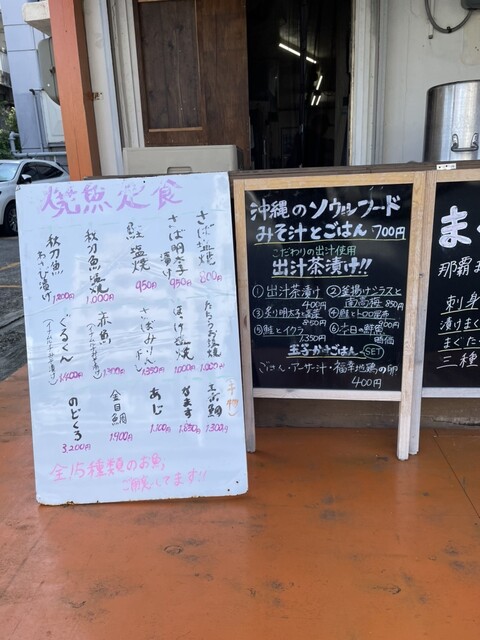 焼魚定食
さば塩焼
800円
さば明太子漬け
950円
鮭塩焼
950円
秋刀魚塩焼
1,000円
秋刀魚わさび漬け
1,200円
1,000円
ほっけ塩焼
1,000円
さばみりん干し
1,350円
赤魚
1300円
ぐるくん
1,400円
1,300円
なます
1,650円
あじ
1,100円
金目鯛
1,400円
のどくろ
3,200円
全15種類のお魚、
ご用意してます!!
沖縄のソウルフード
みそ汁とごはん 700円
こだわりの出汁使用
出汁茶漬け!!
① 出汁茶漬け 400円
② 釜揚げシラスと南高梅 850円
③ 炙り明太子と海苔 850円
④ 鮭とトロロ昆布 800円
⑤ 鮭とイクラ 1,350円
⑥ 本日の鮮魚 時価
玉子かけごはん SET
ごはん・アーサー汁・福幸地鶏の卵
400円
ま
那覇
刺身
漬けま
まぐた
三種